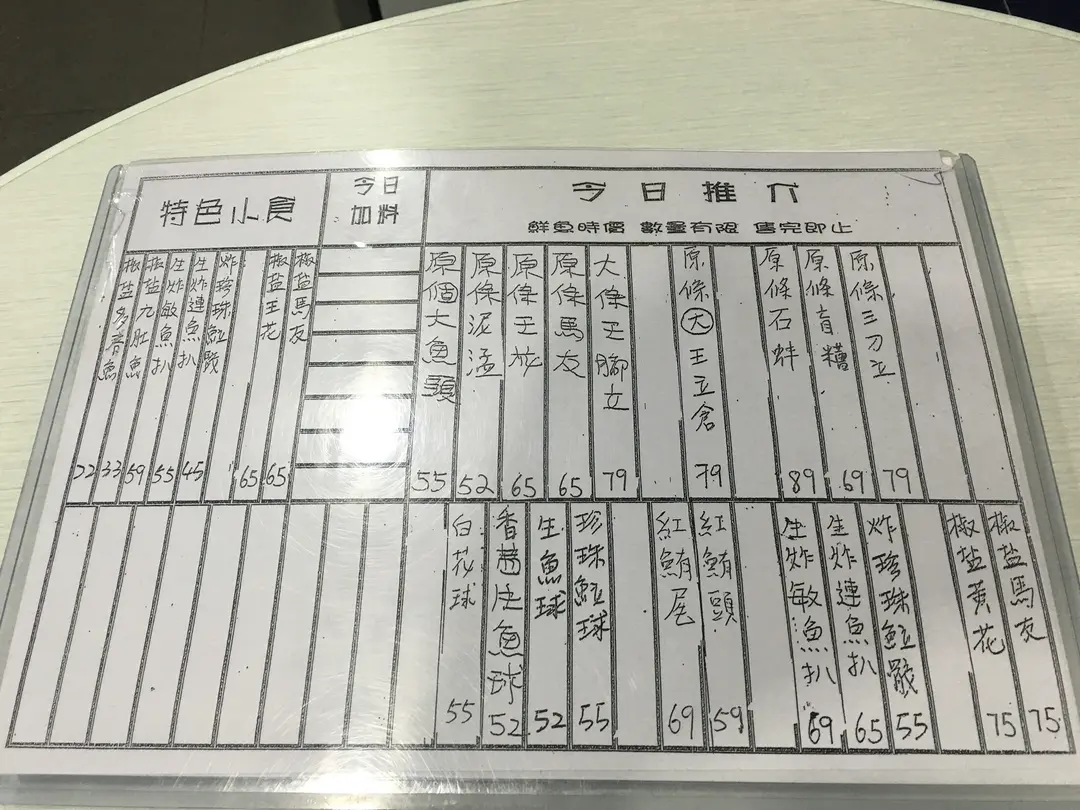 特色小食
今日
加料
今日推介
鮮魚時價 數量有限 售完即止
椒盐多春魚 22
椒盐九肚魚 33
生炸敏魚扒 59
生炸連魚扒 55
炸珍珠骹 45
椒盐王花 65
椒盐馬友 65
原個大魚頭 55
原條泥孟 52
原條王 65
原條馬友 65
大條王腳立 79
原條大王立倉 79
原條石蚌 89
原條盲糟 69
原條三刀立 79
白花球 55
香茜生魚球 52
生魚球 52
珍珠球 55
紅鮪尾 69
紅鮪頭 59
生炸敏魚扒 69
生炸連魚扒 65
炸珍珠骹 55
椒盐黃花 75
椒盐馬友 75